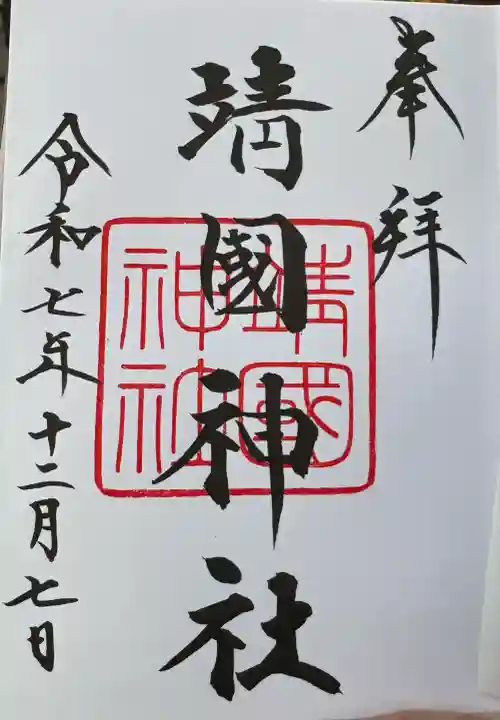 奉拝
靖國神社
靖國
神社
令和七年十二月七日